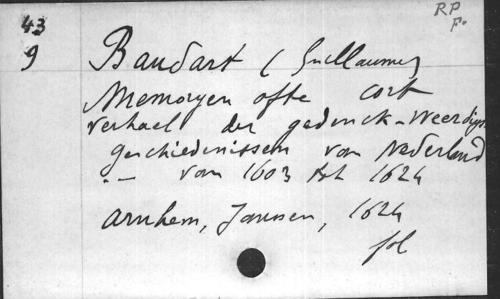 43
9
RP
F.
Baudart (Guillaume)
Memoryen ofte cort
verhael der gedenck-weerdigste
geschiedenissen van Nederland
.. — van 1603 tot 1624
Arnhem, Jansen, 1624
fol